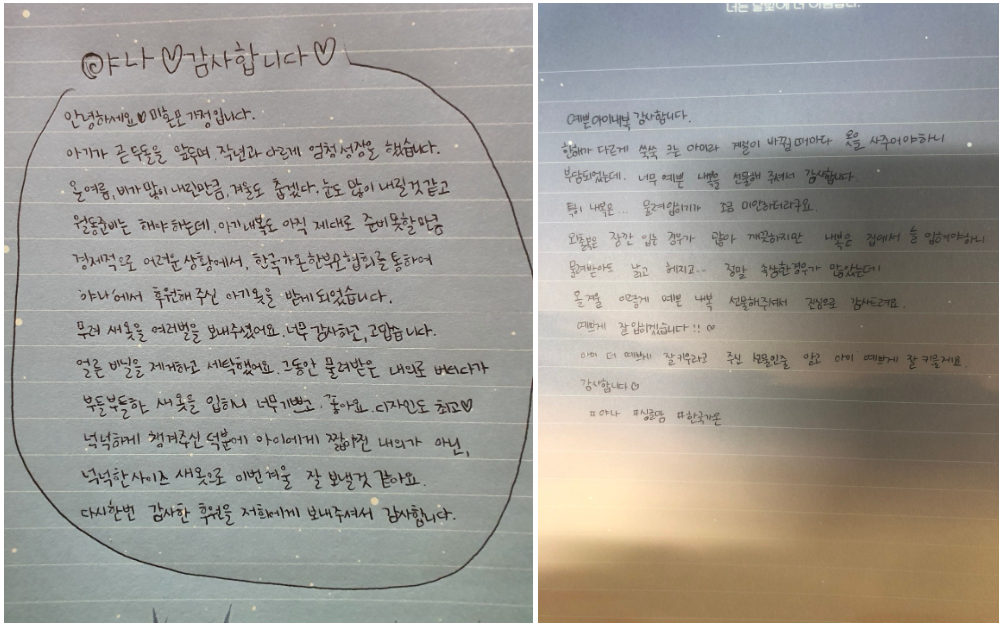 야나♡감사합니다♡
안녕하세요♡미혼모가정입니다.
아기가 곧 두돌을 앞두며, 작년과 다르게 엄청 성장을 했습니다.
올 여름, 비가 많이 내린만큼, 겨울도 춥겠다. 눈도 많이 내릴것 같고
월동준비는 해야 하는데, 아기내복도 아직 제대로 준비 못할만큼
경제적으로 어려운 상황에서, 한국가온한부모협회를 통하여
야나에서 후원해 주신 아기옷을 받게 되었습니다.
무려 새옷을 여러벌을 보내주셨어요. 너무 감사하고, 고맙습니다.
얼른 비닐을 제거하고 세탁했어요. 그동안 물려받은 내의로 버티다가
부들부들한 새옷을 입히니 너무 기쁘고. 좋아요. 디자인도 최고♡
넉넉하게 챙겨주신 덕분에 아이에게 짧아진 내의가 아닌,
넉넉한 사이즈 새옷으로 이번겨울 잘 보낼것 같아요.
다시한번 감사한 후원을 저희에게 보내주셔서 감사합니다.
너는 달빛에 더 아름답다.
예쁜아이내복 감사합니다.
한해가 다르게 쑥쑥 크는 아이라 계절이 바뀔때마다 옷을 사주어야하니
부담되었는데. 너무 예쁜 내복을 선물해 주셔서 감사합니다.
특히 내복은... 물려입히기가 조금 미안하더라구요.
외출복은 잠깐 입는 경우가 많아 깨끗하지만 내복은 집에서 늘 입혀야하니
물려받아도 낡고 헤지고... 정말 속상한경우가 많았는데!
올 겨울 이렇게 예쁜 내복 선물해주셔서 진심으로 감사드려요.
예쁘게 잘 입히겠습니다!! ♡
아이 더 예쁘게 잘 키우라고 주신 선물인줄 알고 아이 예쁘게 잘 키울게요.
감사합니다♡
#야나 #싱글맘 #한국가온